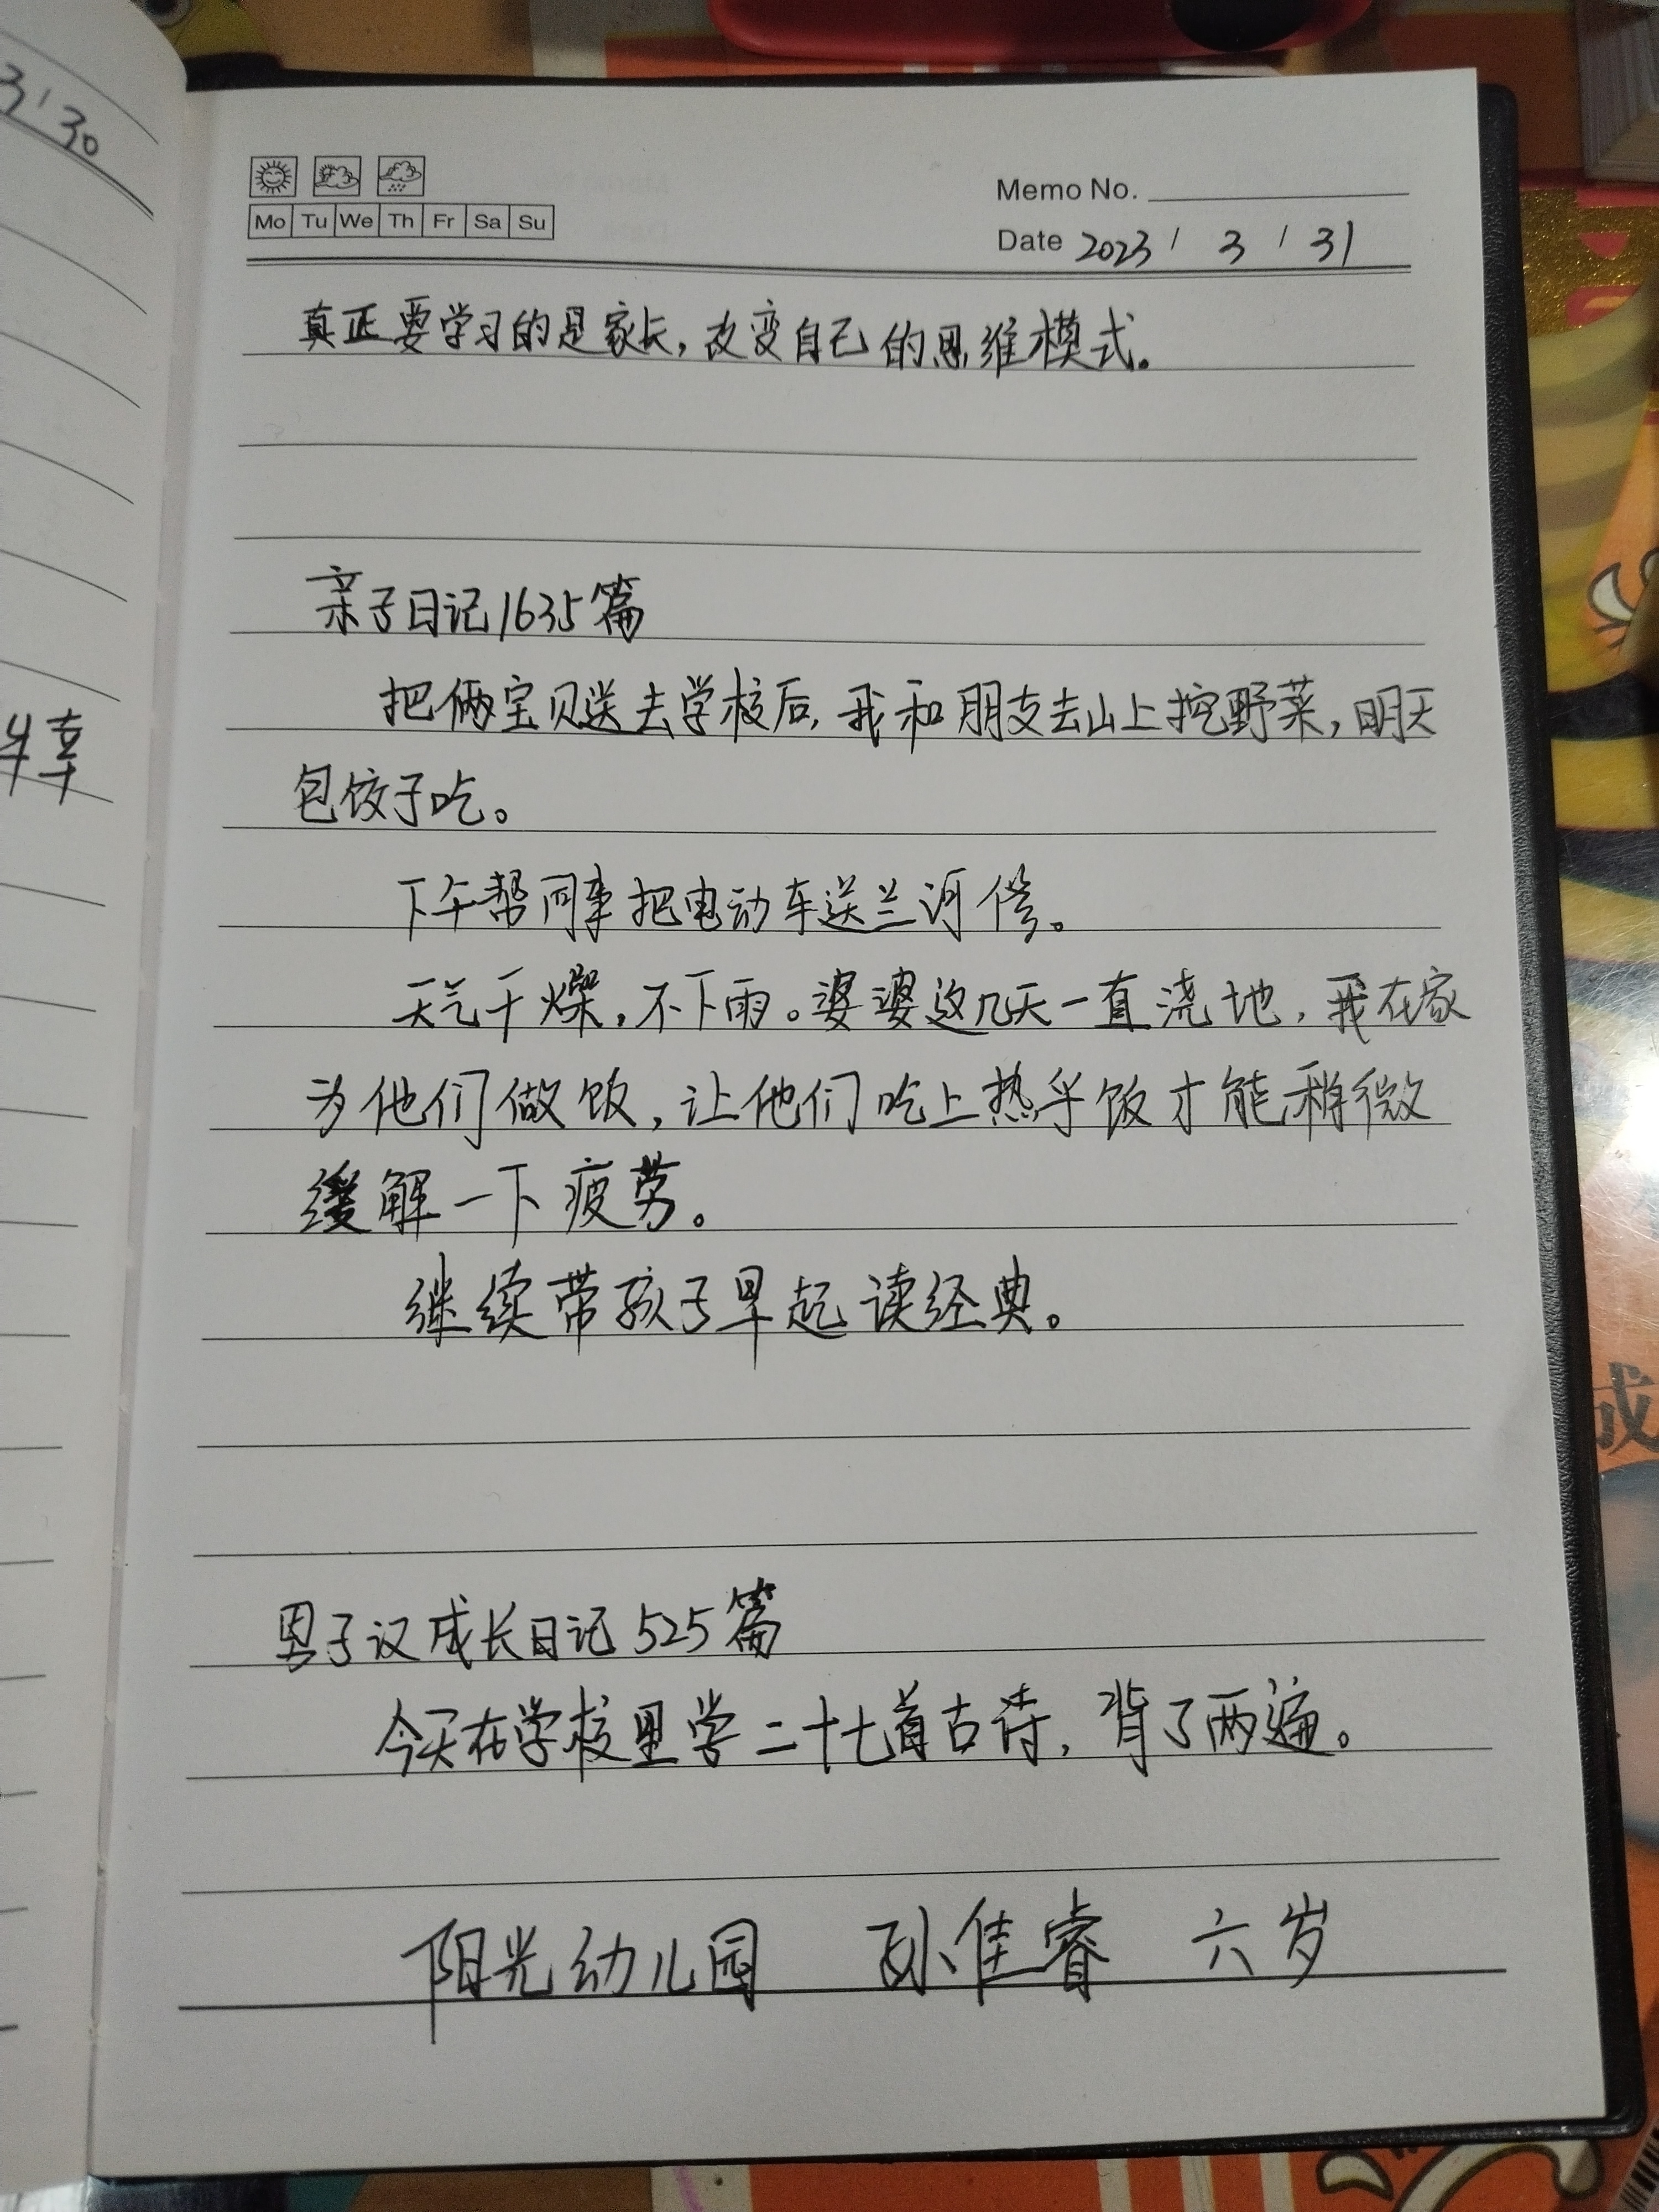 3/30
Mo Tu We Th Fr Sa Su
Memo No.
Date 2023 / 3 / 31
真正要学习的是家长，改变自己的思维模式。
亲子日记1635篇
把俩宝贝送去学校后，我和朋友去山上挖野菜，明天
包饺子吃。
下午帮同事把电动车送兰河
天气干燥，不下雨。婆婆这几天一直浇地，我在家
为他们做饭，让他们吃上热乎饭才能稍微
缓解一下疲劳。
继续带孩子早起读经典。
男子汉成长日记525篇
今天在学校里学二十七首古诗，背了两遍。
阳光幼儿园 孙佳睿 六岁
成